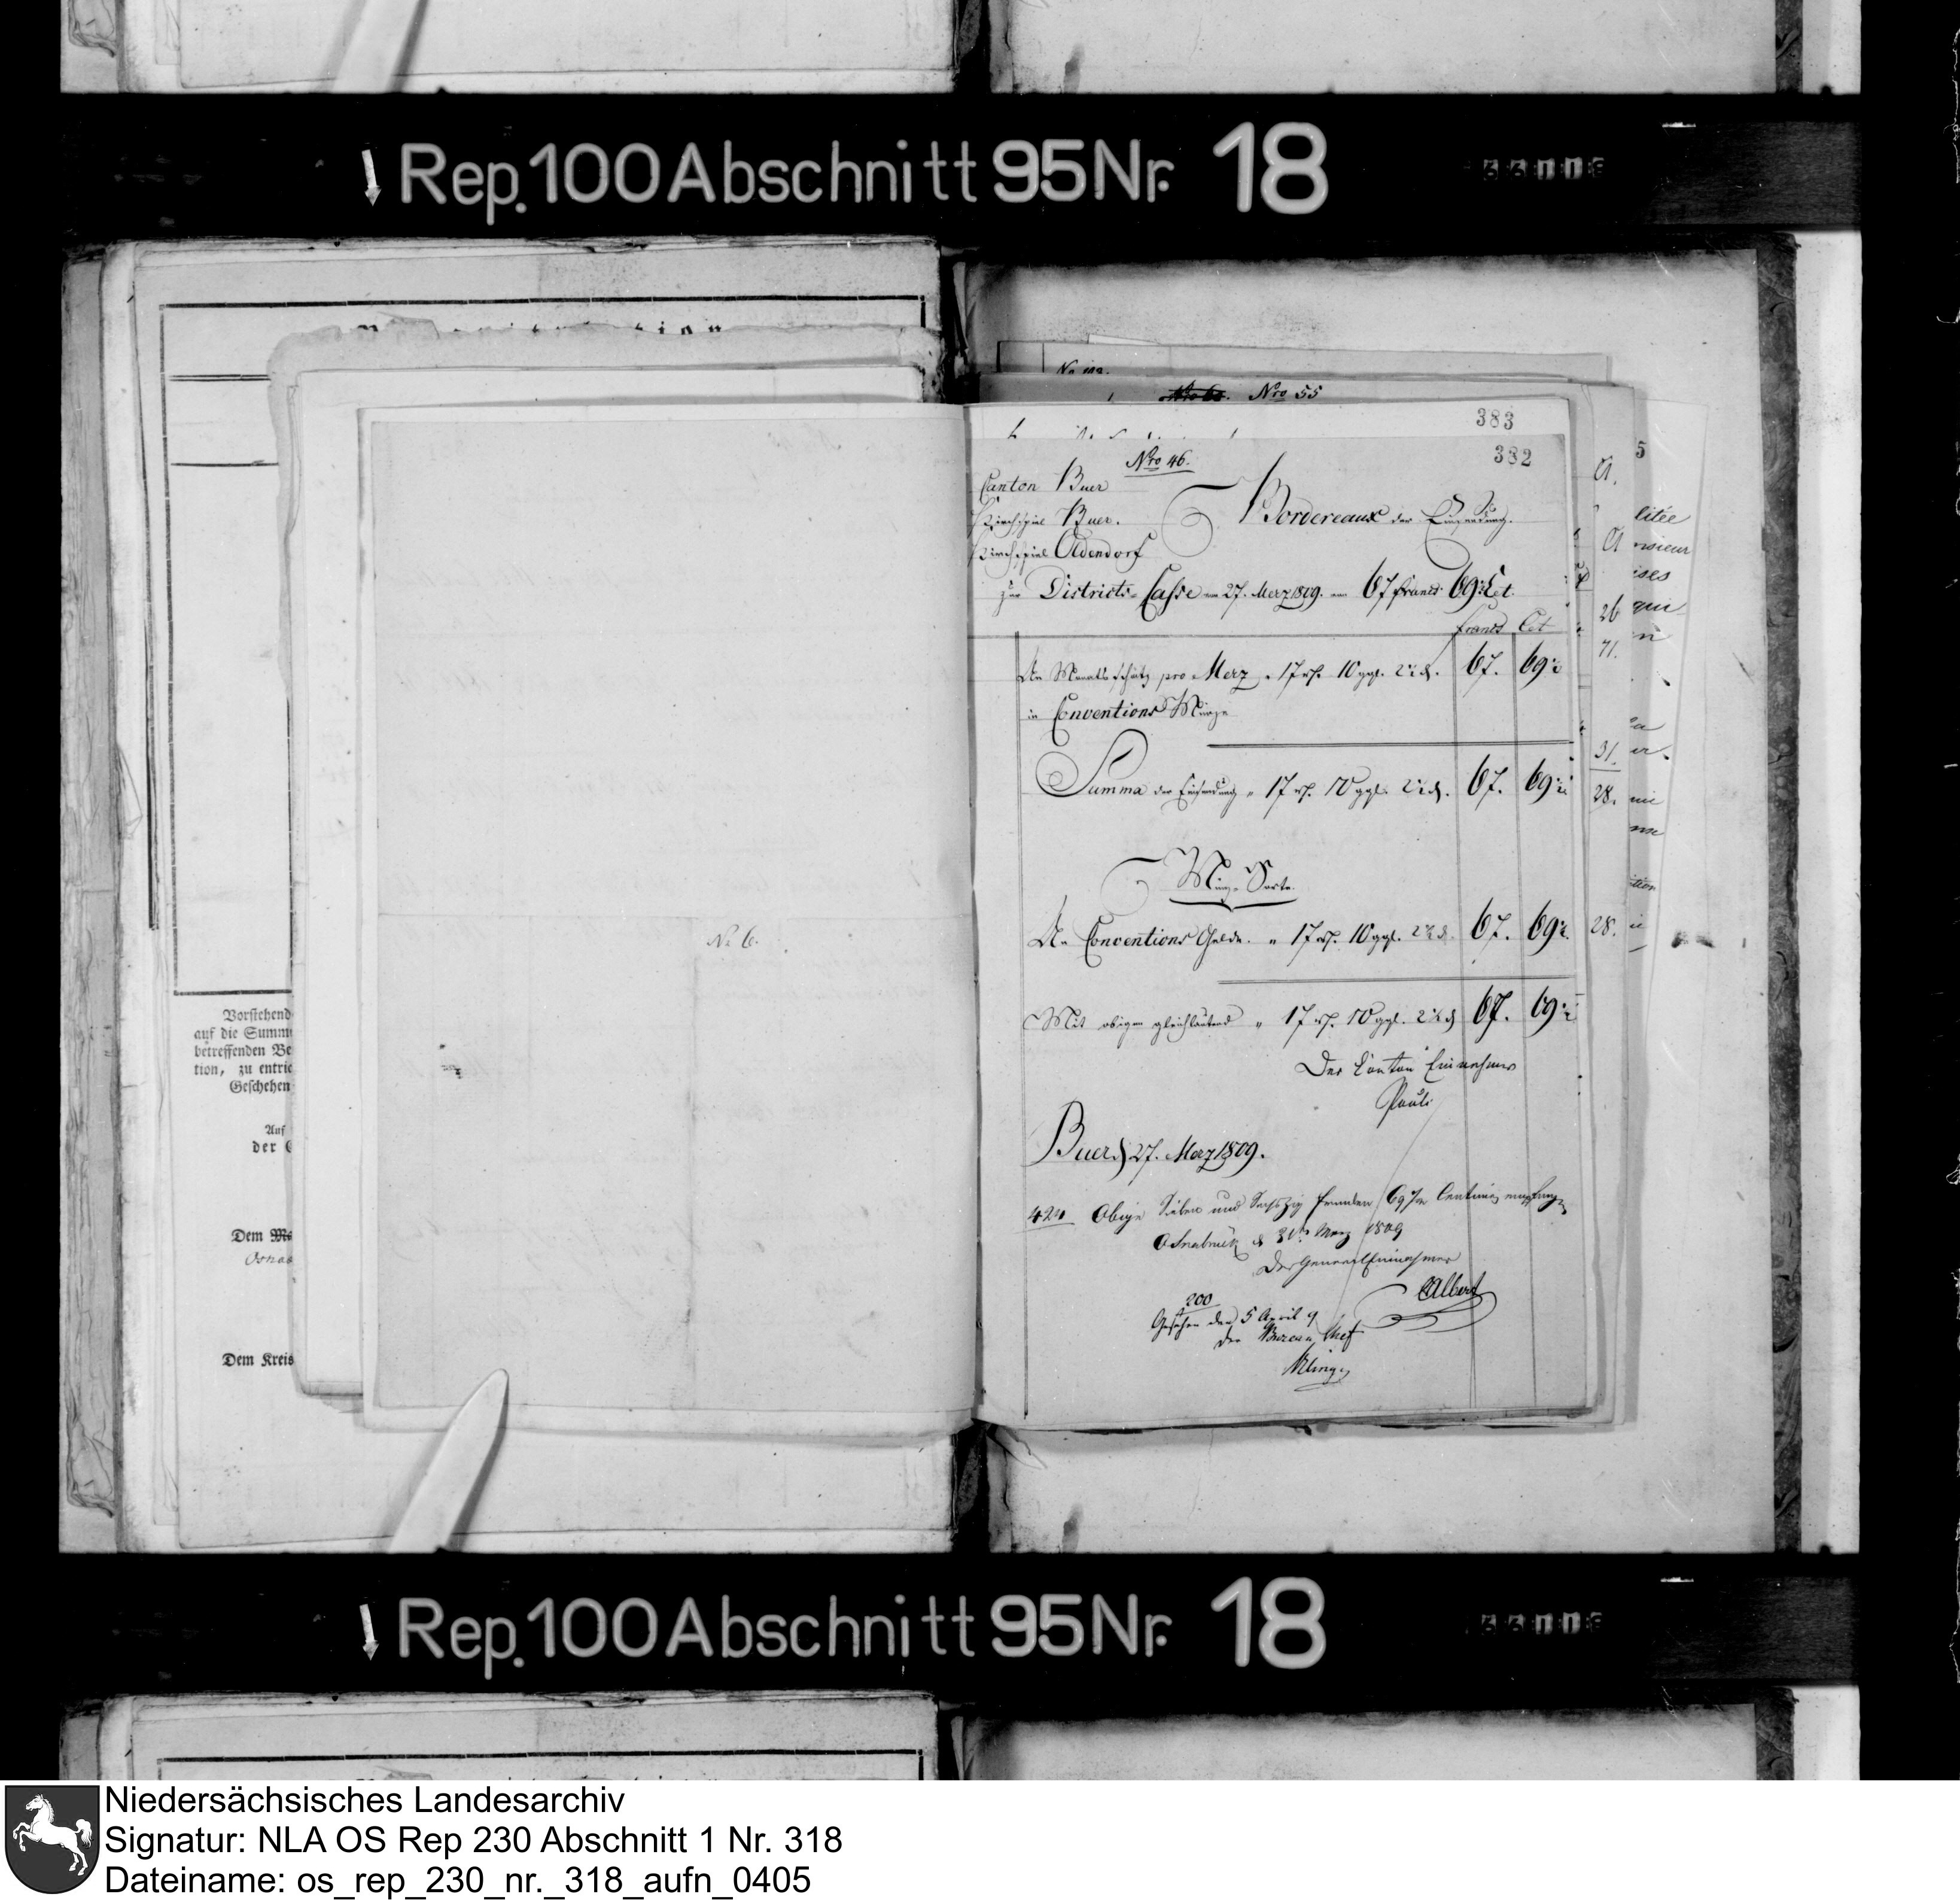 Rep. 100 Abschnitt 95 Nr. 18
Nro 55
383
382
Nro 46.
Canton Buer
Kirchspiel Buer.
Kirchspiel Oldendorf
Bordereaux der Einsendung.
zur Districts-Casse am 27. Merz 1809. von 67 francs 69½ Cet.
francs Cet
An Monatsschatz pro Merz " 17 rt. 10 ggl. 2½ d. 67. 69½
in Conventions Münze
Summa der Einsendung " 17 rt. 10 ggl. 2½ d. 67. 69½
Münz-Sorte.
An Conventions Gelde. " 17 rt. 10 ggl. 2½ d. 67. 69½
Mit obigen gleichlautend " 17 rt. 10 ggl. 2½ d 67. 69½
Der Canton Einnehmer
Pauli
Buer d 27. Merz 1809.
424 Obige Sieben und Sechszig Franken 69½ Centimen empfangen
Osnabrück d 31ten Merz 1809
Der General Einnehmer
Albert
200
Gesehen den 5 April 9
Der Bureau Chef
No 6.
Vorstehend
auf die Summ
betreffenden Be
tion, zu entric
Geschehen
Auf
der
Dem
Osna
Dem Kreis
litée
ises
qui
26
71.
31.
28.
28.
Rep. 100 Abschnitt 95 Nr. 18
Niedersächsisches Landesarchiv
Signatur: NLA OS Rep 230 Abschnitt 1 Nr. 318
Dateiname: os_rep_230_nr._318_aufn_0405